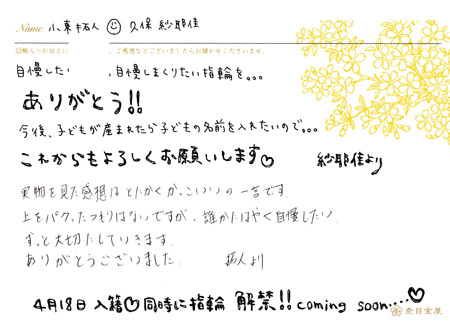 Name 小東拓人 ☺ 久保 紗耶佳
ご感想などございましたらお聞かせくださいませ。
自慢したい 自慢しまくりたい指輪を。。。
ありがとう!!
今後、子どもが産まれたら子どもの名前を入れたいので。。。
これからもよろしくお願いします♡ 紗耶佳より
実物を見た感想はとにかくかっこいいの一言です。
上をパクったつもりはないですが、誰かにはやく自慢したい。
ずっと大切にしていきます。
ありがとうございました。 拓人より
4月18日 入籍♡同時に指輪 解禁!! coming soon....♡
杢目金屋